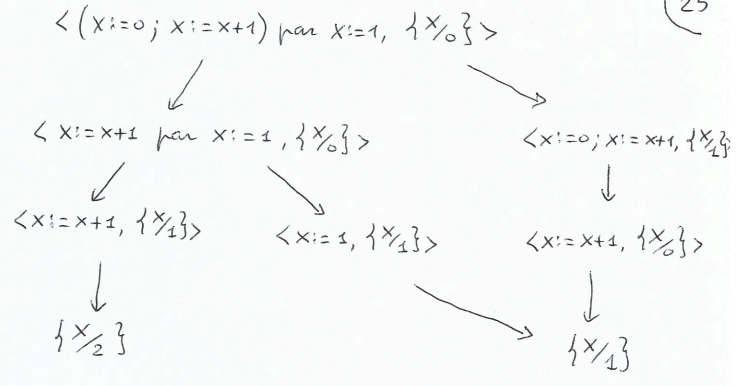 25
<(x:=0; x:=x+1) par x:=1, {x/0}>
<x:=x+1 par x:=1, {x/0}> <x:=0; x:=x+1, {x/1}
<x:=x+1, {x/1}> <x:=1, {x/1}> <x:=x+1, {x/0}>
{x/2} {x/1}